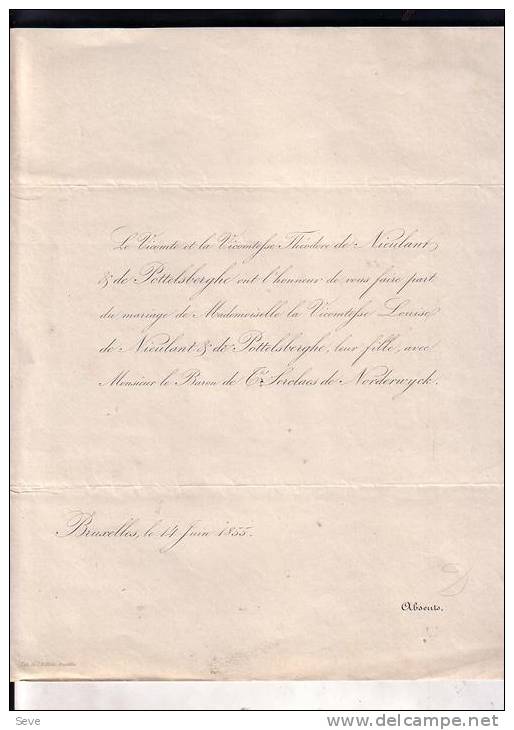 Le Vicomte et la Vicomtesse Théodore de Nieulant
& de Pottelsberghe ont l'honneur de vous faire part
du mariage de Mademoiselle la Vicomtesse Louise
de Nieulant & de Pottelsberghe, leur fille, avec
Monsieur le Baron de T'Serclaes de Norderwyck.
Bruxelles, le 14 Juin 1855.
Absents.
Seve
delcampe.net